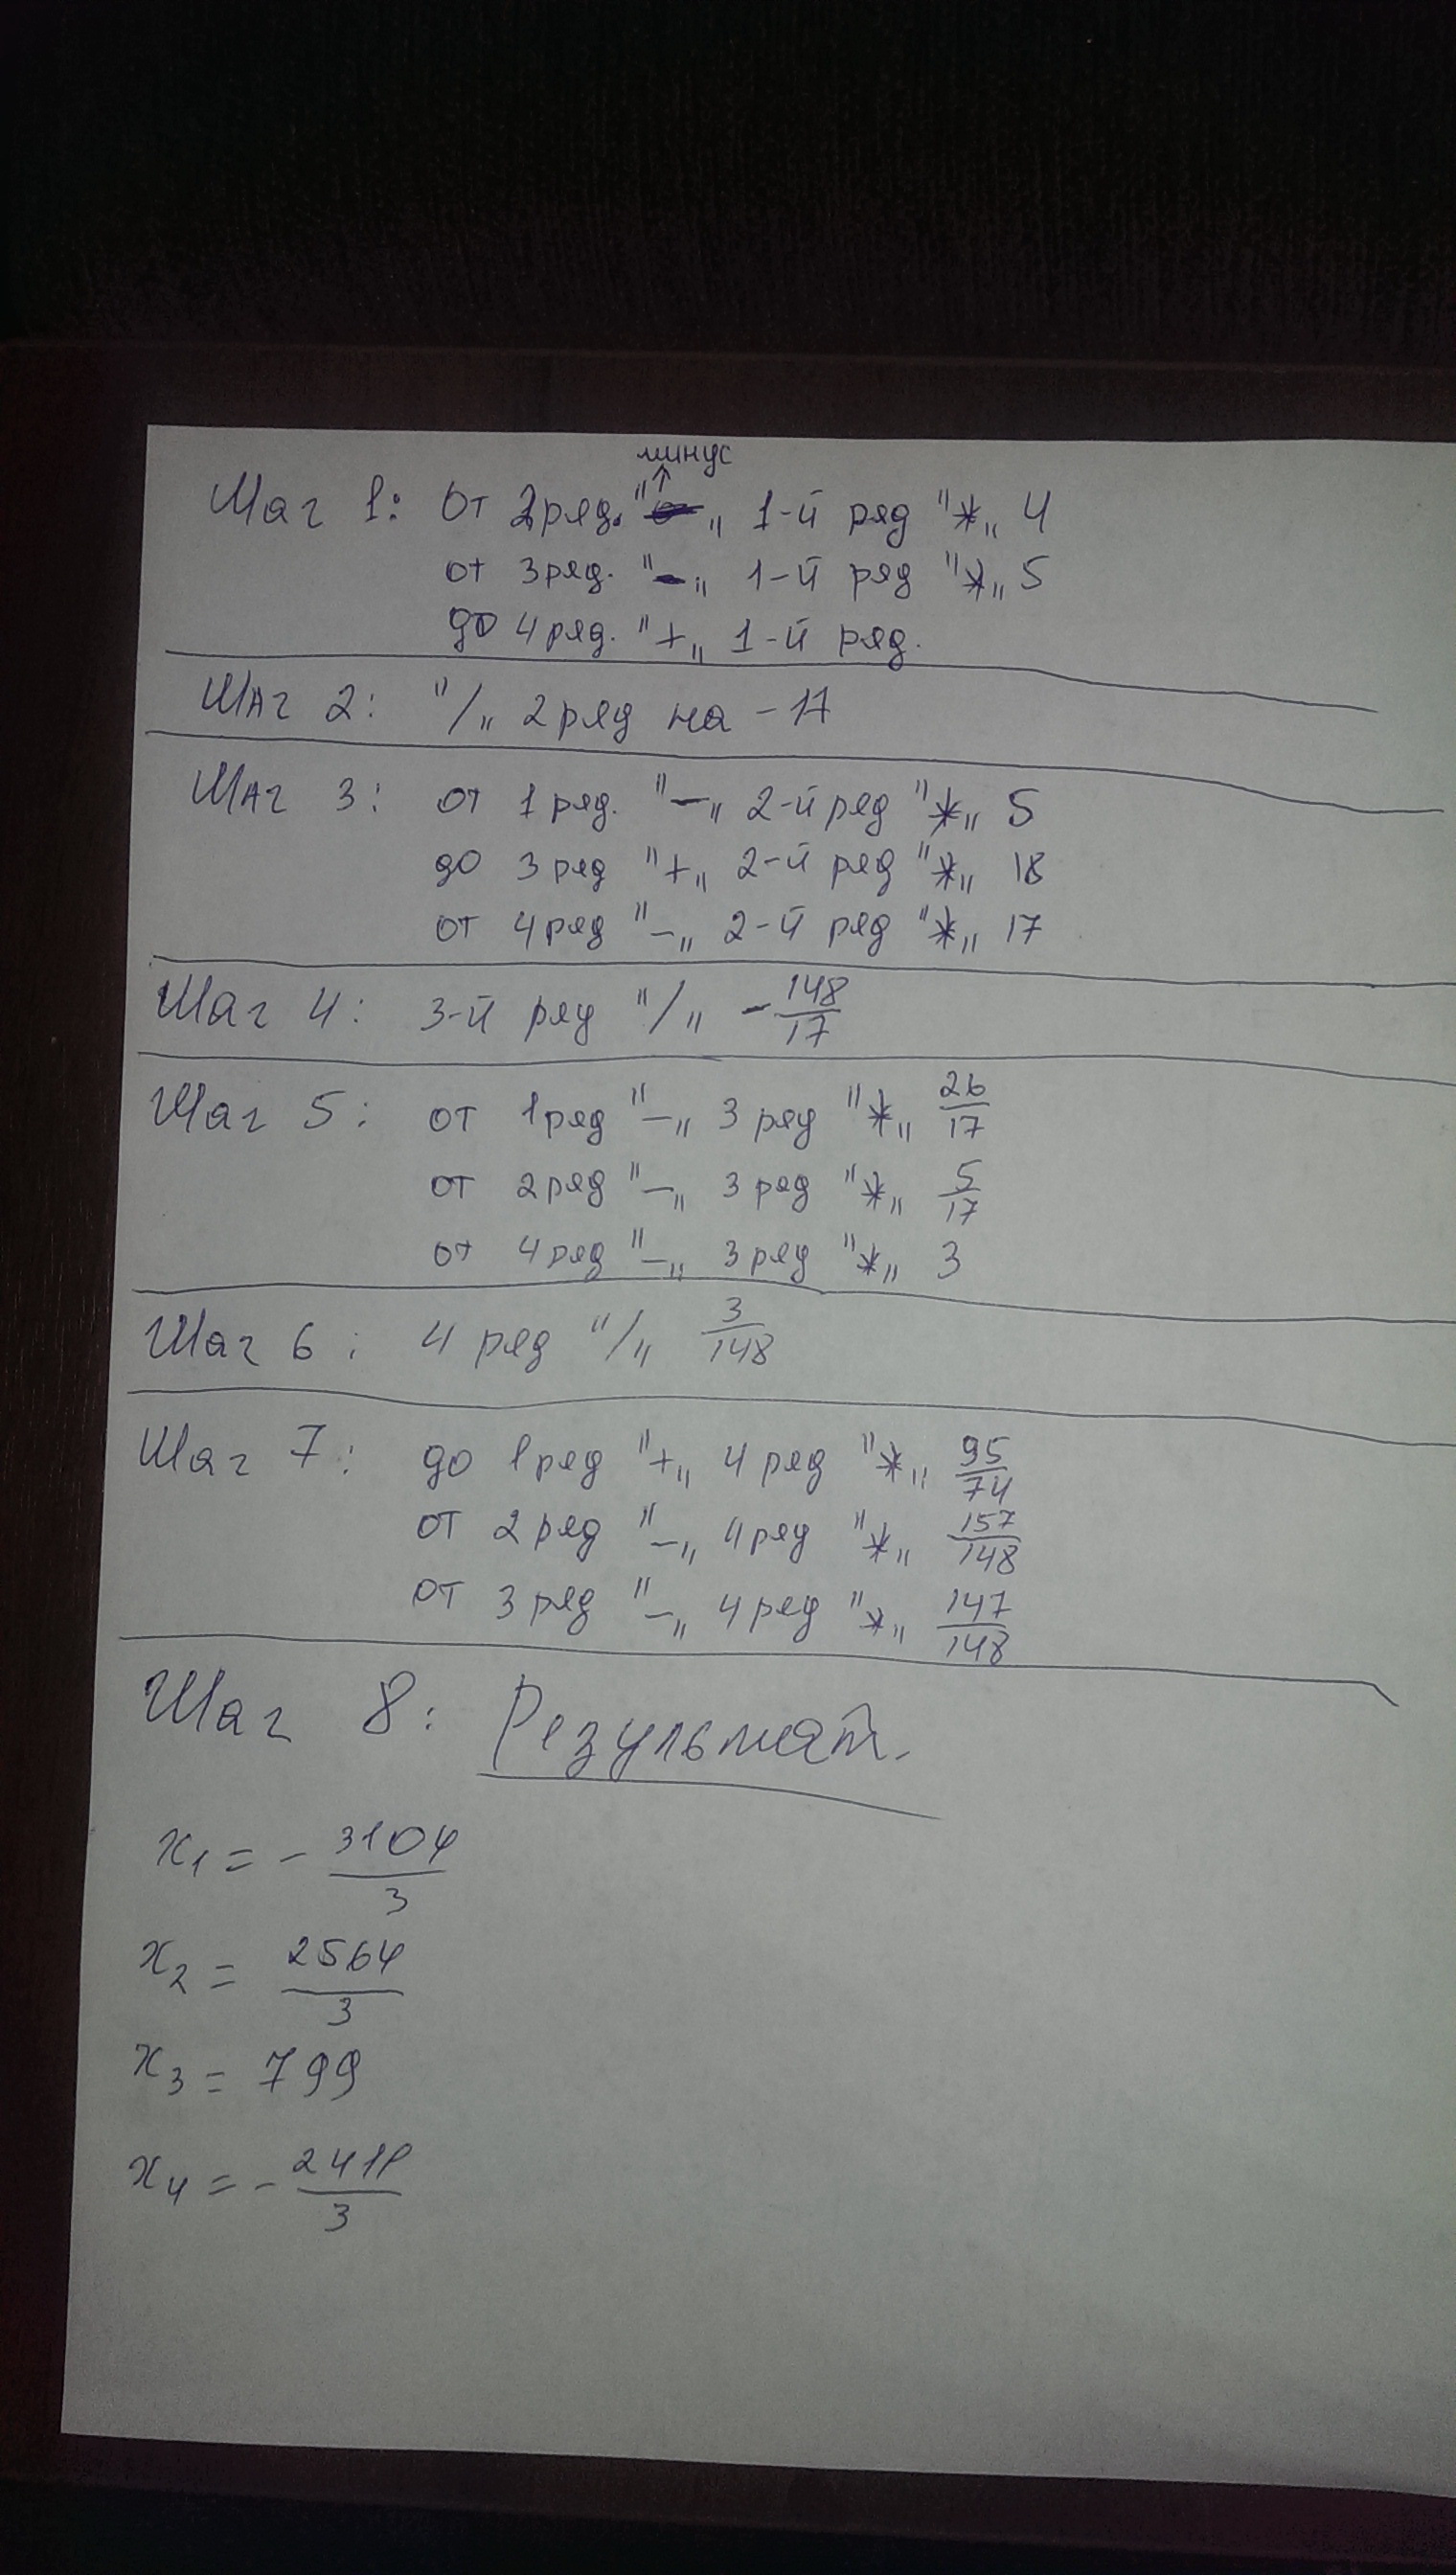 минус
↑
Шаг 1: От 2 ряд. "-„ 1-й ряд "*„ 4
от 3 ряд. "-„ 1-й ряд "*„ 5
до 4 ряд. "+„ 1-й ряд.
Шаг 2: "/„ 2 ряд на -17
Шаг 3: от 1 ряд. "-„ 2-й ряд "*„ 5
до 3 ряд "+„ 2-й ряд "*„ 18
от 4 ряд "-„ 2-й ряд "*„ 17
Шаг 4: 3-й ряд "/„ -148/17
Шаг 5: от 1 ряд "-„ 3 ряд "*„ 26/17
от 2 ряд "-„ 3 ряд "*„ 5/17
от 4 ряд "-„ 3 ряд "*„ 3
Шаг 6: 4 ряд "/„ 3/148
Шаг 7: до 1 ряд "+„ 4 ряд "*„ 95/74
от 2 ряд "-„ 4 ряд "*„ 157/148
от 3 ряд "-„ 4 ряд "*„ 147/148
Шаг 8: Результат.
x1 = -3104/3
x2 = 2564/3
x3 = 799